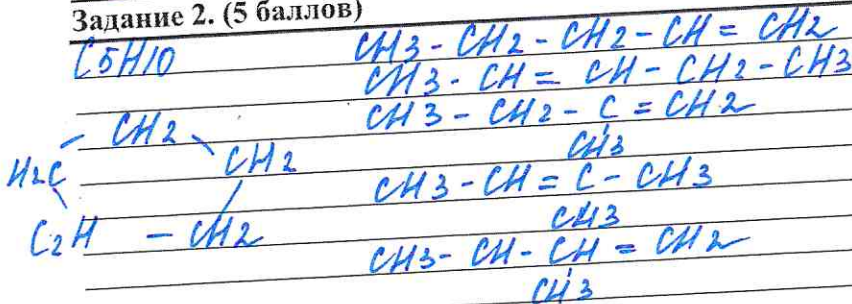 Задание 2. (5 баллов)
C5H10
CH3 - CH2 - CH2 - CH = CH2
CH3 - CH = CH - CH2 - CH3
CH3 - CH2 - C = CH2
CH3
CH3 - CH = C - CH3
CH3
CH3 - CH - CH = CH2
CH3
CH2
H2C
CH2
C2H - CH2